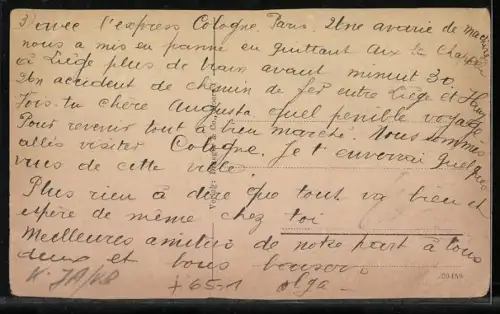 3) avec l'express Cologne. Paris. Une avarie de machine
nous a mis en panne en quittant Aix la Chapelle
à Liège plus de train avant minuit 30.
Un accident de chemin de fer entre Liège et Huy
Vois-tu chère Augusta quel penible voyage
Pour revenir tout à bien marché. Nous sommes
allés visiter Cologne. Je t'enverrai quelques
vues de cette ville.
Plus rien à dire que tout va bien et
espère de même chez toi
Meilleures amitiés de notre part à tous
deux et bons baisers.
Olga